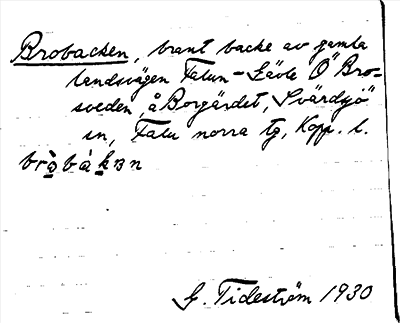 Brobacken, brant backe av gamla
landsvägen Falun-Gävle Ö Bro-
sveden, å Borgärdet, Svärdsjö
sn, Falu norra tg, Kopp. l.
bròbàkɜn
G. Tideström 1930